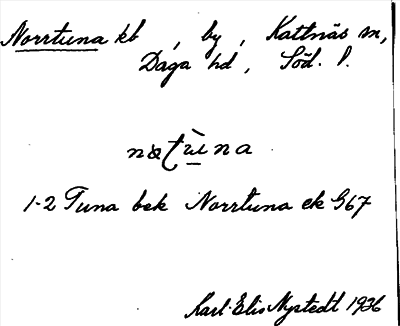 Norrtuna kb, by, Kattnäs sn,
Daga hd, Söd. l.
1-2 Tuna bek Norrtuna ek G67
Karl-Elis Nystedt 1936